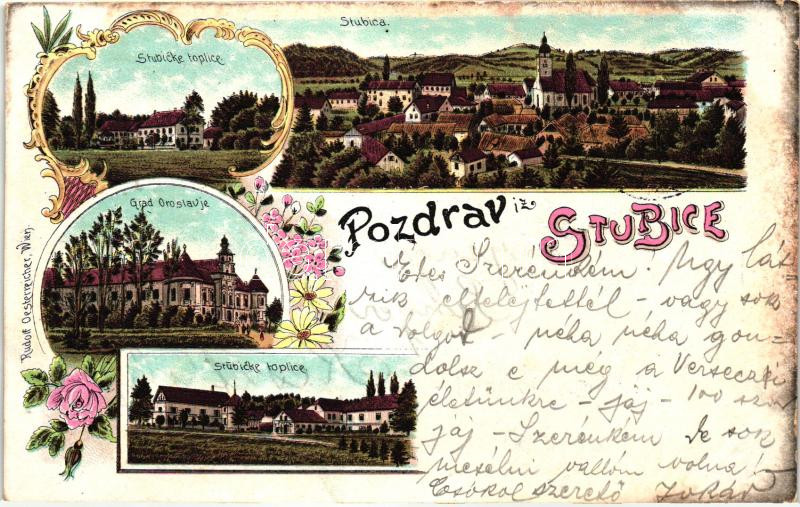 Stubičke toplice
Stubica.
Grad Oroslavje
Rudolf Oesterreicher, Wien.
Stubičke toplice
Pozdrav iz STUBICE
Édes Szerénkém. Úgy lát-
szik elfelejtettél - vagy sok
a dolgod - néha néha gon-
dolsz e még a Verseczi
életünkre - jaj - 100 szor
jáj - Szerénkém de sok
mesélni vallóm volna!
Csókol szerető